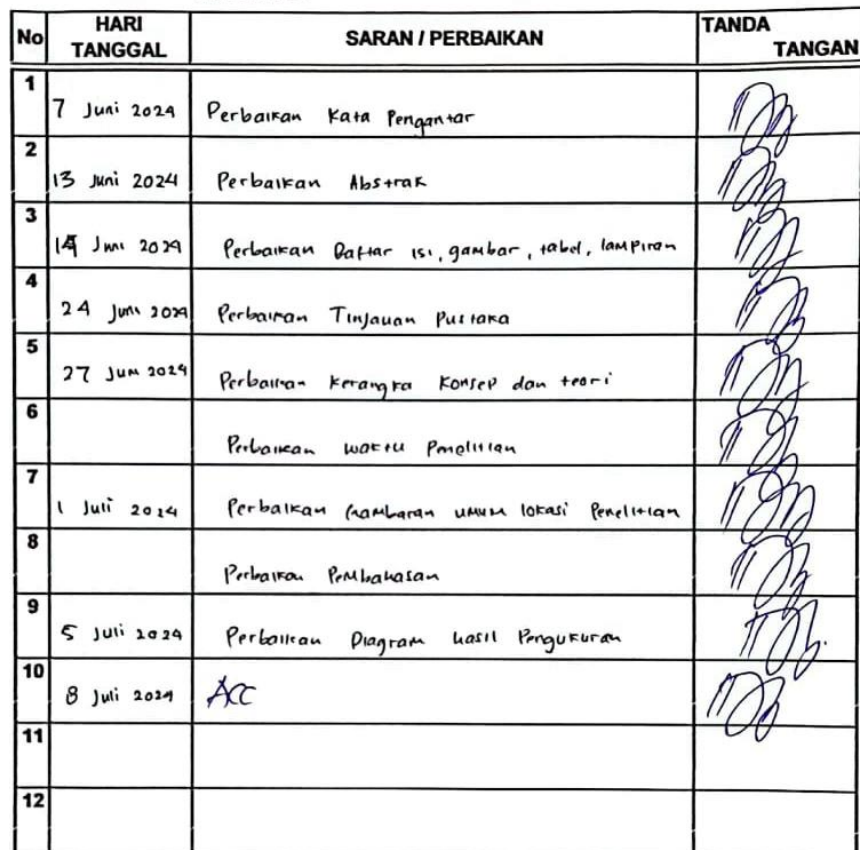 No HARI TANGGAL SARAN / PERBAIKAN TANDA TANGAN
1 7 Juni 2024 Perbaikan Kata Pengantar
2 13 Juni 2024 Perbaikan Abstrak
3 14 Juni 2024 Perbaikan Daftar isi, gambar, tabel, lampiran
4 24 Juni 2024 Perbaikan Tinjauan Pustaka
5 27 Juni 2024 Perbaikan Kerangka Konsep dan teori
6 Perbaikan waktu Penelitian
7 1 Juli 2024 Perbaikan Gambaran umum lokasi Penelitian
8 Perbaikan Pembahasan
9 5 Juli 2024 Perbaikan Diagram hasil Pengukuran
10 8 Juli 2024 ACC
11
12